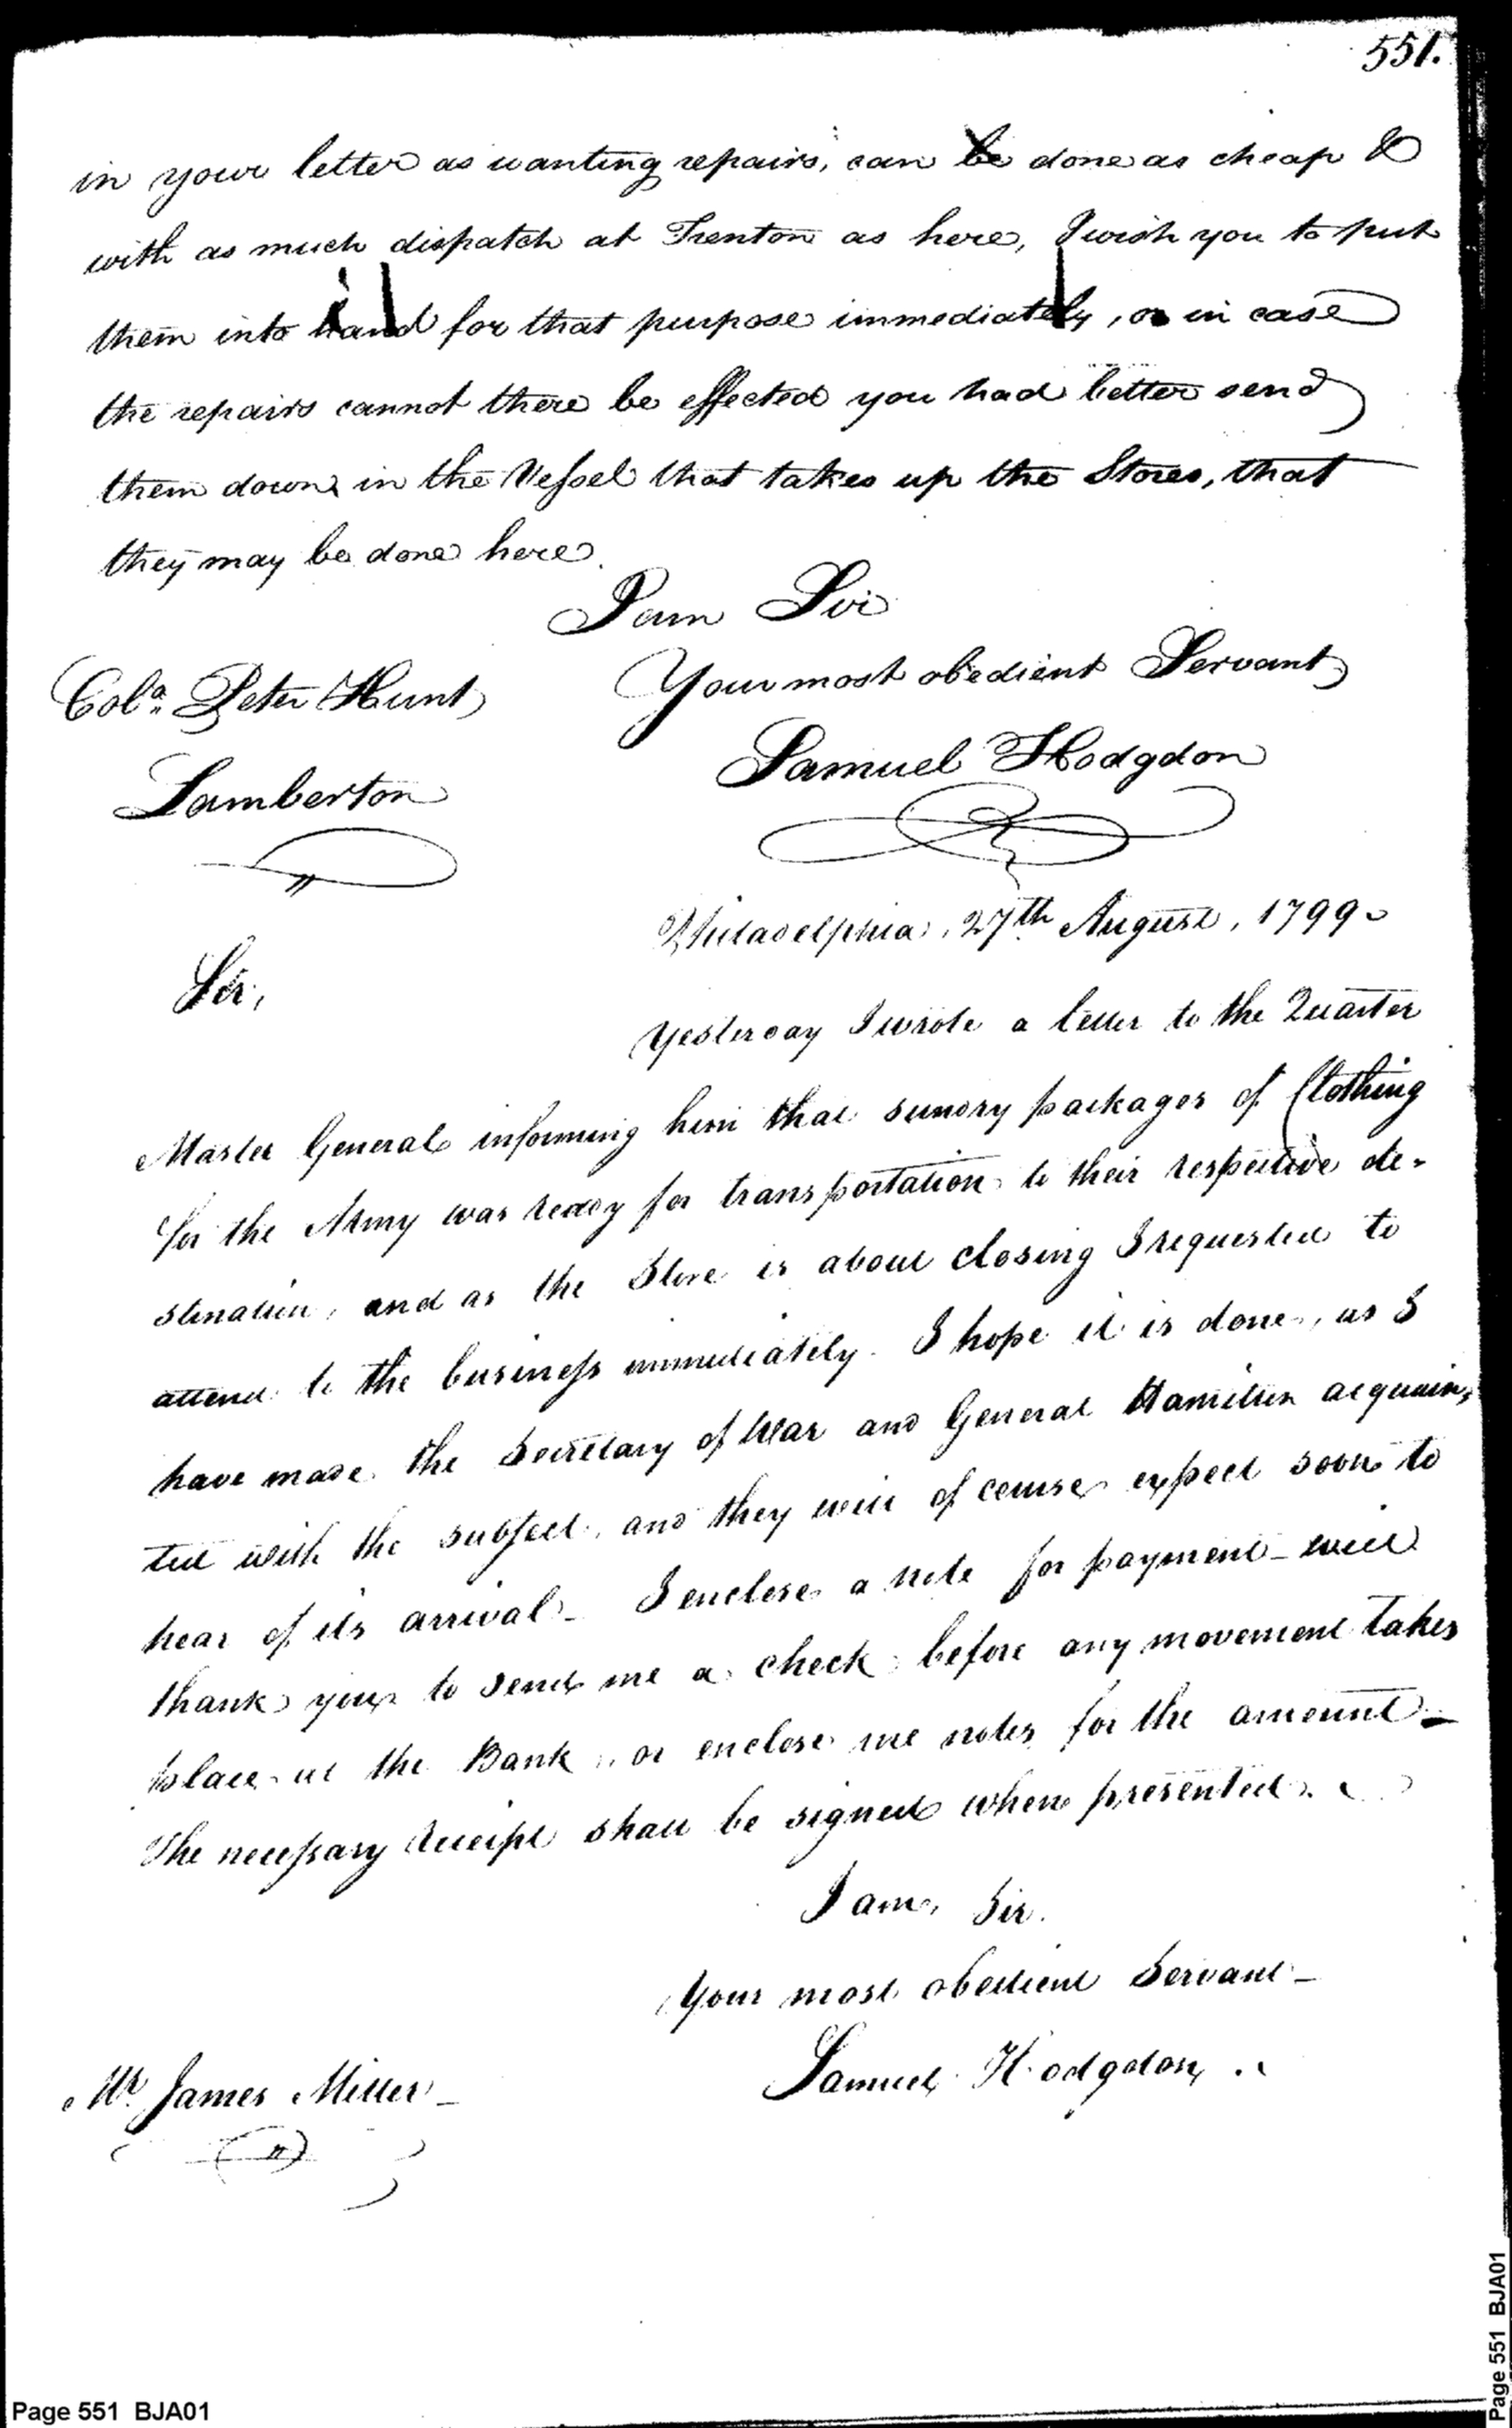 551.
in your letter as wanting repairs, can be done as cheap &
with as much dispatch at Trenton as here, I wish you to put
them into hand for that purpose immediately, or in case
the repairs cannot there be effected you had better send
them down in the Vessel that takes up the Stores, that
they may be done here.
I am Sir
Your most obedient Servant
Colo. Peter Hunt
Samuel Hodgdon
Lamberton
Philadelphia, 27th August, 1799
Sir,
Yesterday I wrote a letter to the Quarter
Master General informing him that sundry packages of Clothing
for the Army was ready for transportation to their respective de-
stination, and as the Store is about closing I requested to
attend to the business immediately. I hope it is done, as I
have made the Secretary of War and General Hamilton acquain-
ted with the subject, and they will of course expect soon to
hear of its arrival - I enclose a note for payment - will
thank you to send me a check before any movement takes
place at the Bank, or enclose me notes for the amount -
The necessary receipt shall be signed when presented.
I am, Sir.
Your most obedient Servant -
Samuel Hodgdon
Mr. James Miller -
Page 551 BJA01
Page 551 BJA01